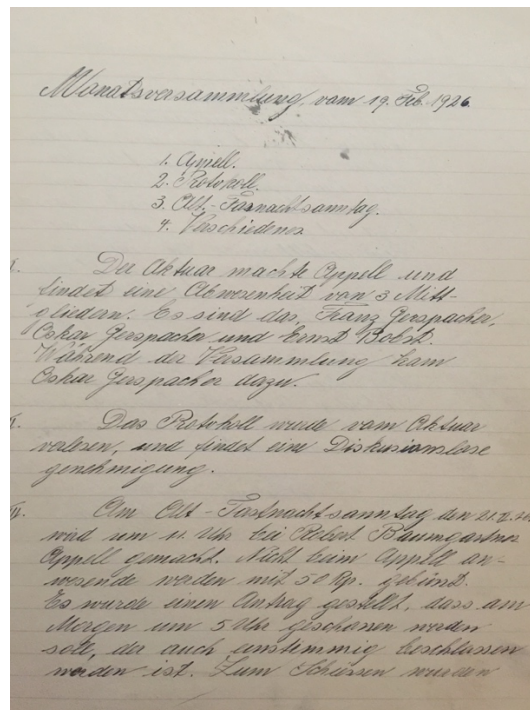 Monatsversammlung, vom 19. Feb. 1926.
1. Appell.
2. Protokoll.
3. Alt-Fasnachtsonntag.
4. Verschiedenes
I. Der Aktuar machte Appell und
findet eine Abwesenheit von 3 Mitt-
gliedern. Es sind das, Franz Gerspacher,
Oskar Gerspacher und Ernst Boberst.
Während der Versammlung kam
Oskar Gerspacher dazu.
II. Das Protokoll wurde vom Aktuar
verlesen, und findet eine Diskusionslose
genehmigung.
Am Alt-Fastnachtsonntag den 21. II.
wird um 11. Uhr bei Robert Baumgartner
Appell gemacht. Nicht beim Appell an-
wesende werden mit 50 Rp. gebüsst.
Es wurde einen Antrag gestellt, dass am
Morgen um 5 Uhr geschossen werden
soll, der auch einstimmig beschlossen
worden ist. Zum Schiessen wurden